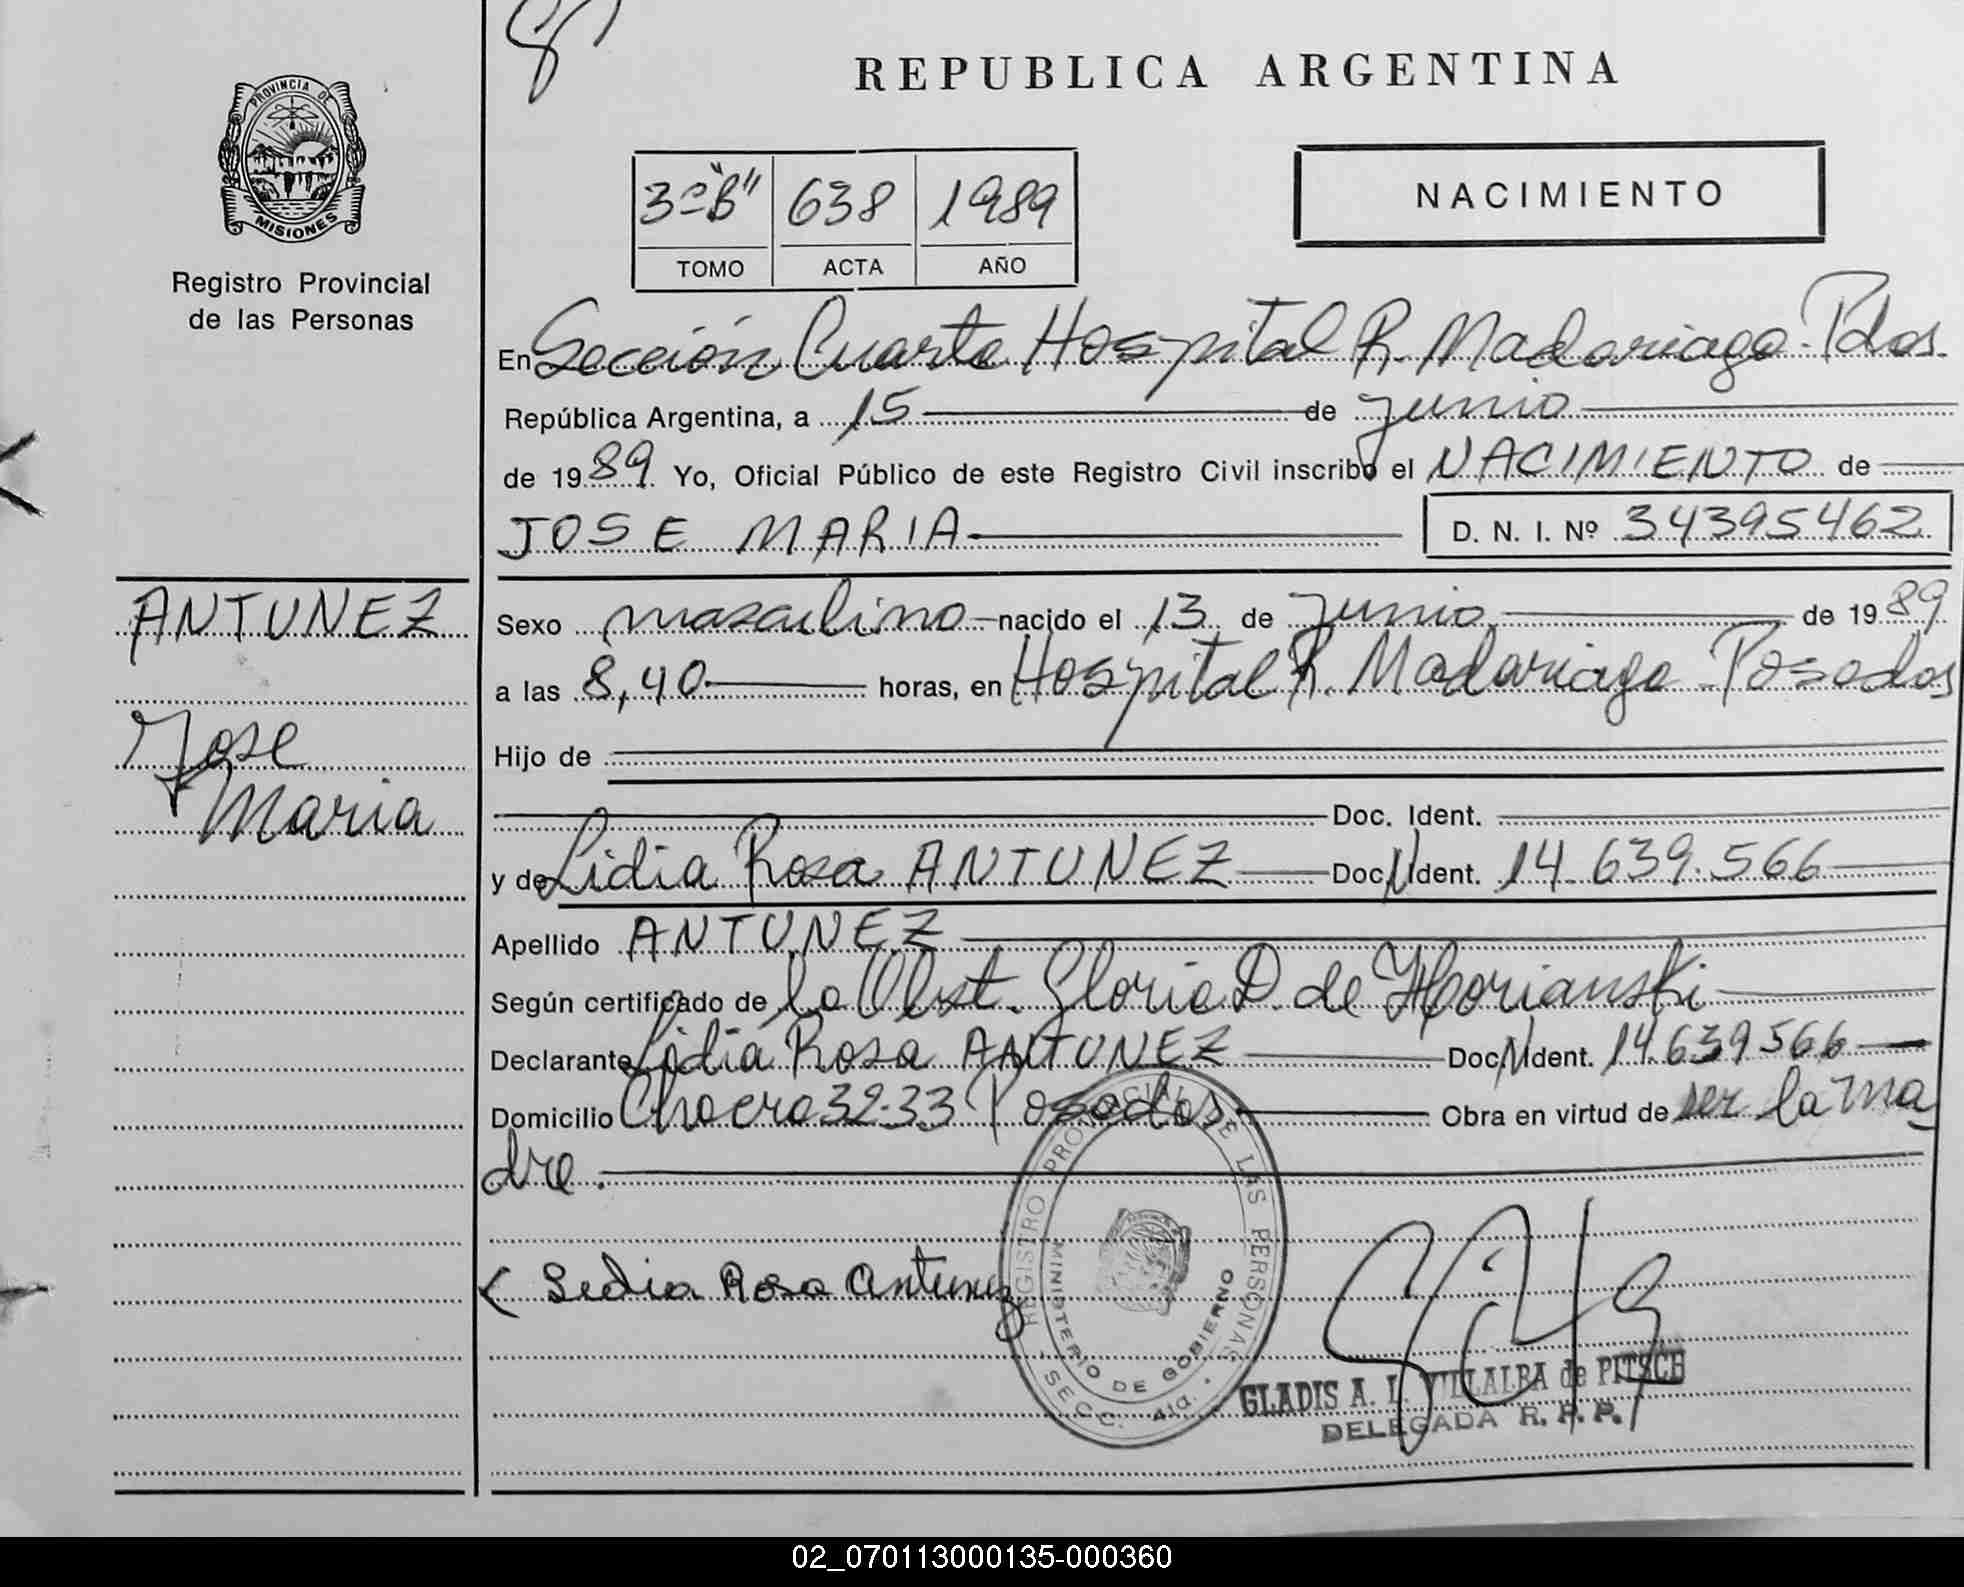 REPUBLICA ARGENTINA
PROVINCIA DE
MISIONES
Registro Provincial
de las Personas
3º "B" 638 1989
TOMO ACTA AÑO
NACIMIENTO
En Sección Cuarta Hospital R. Madariaga - Pdas.
República Argentina, a 15 de junio
de 1989 Yo, Oficial Público de este Registro Civil inscribo el NACIMIENTO de
JOSE MARIA D. N. I. Nº 34395462
ANTUNEZ
Jose
Maria
Sexo masculino nacido el 13 de junio de 1989
a las 8,40 horas, en Hospital R. Madariaga - Posadas
Hijo de
Doc. Ident.
y de Lidia Rosa ANTUNEZ Doc. N Ident. 14.639.566
Apellido ANTUNEZ
Según certificado de la Obst. Gloria D. de
Declarante Lidia Rosa ANTUNEZ Doc. N Ident. 14.639.566
Domicilio 32-33 Posadas Obra en virtud de ser la ma
dre.
Ledia Rosa Antunez
REGISTRO PROVINCIAL DE LAS PERSONAS
MINISTERIO DE GOBIERNO
SECC. 4ta.
GLADIS A. L. VILLALBA de PITSCH
DELEGADA R. P. P.
02_070113000135-000360